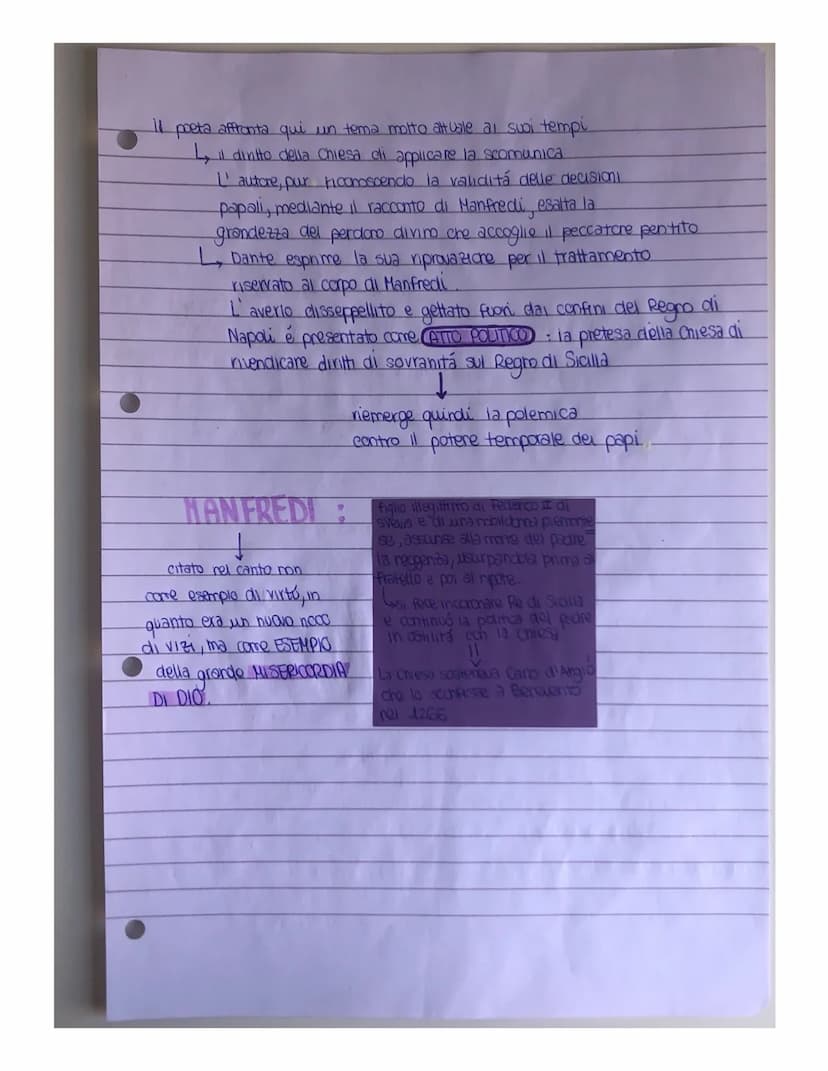 Il poeta affronta qui un tema molto attuale ai suoi tempi
↳ il diritto della Chiesa di applicare la scomunica
L'autore, pur riconoscendo la validitá delle decisioni
papali, mediante il racconto di Manfredi, esalta la
grandezza del perdono divino che accoglie il peccatore pentito
↳ Dante esprime la sua riprovazione per il trattamento
riservato al corpo di Manfredi.
L'averlo disseppellito e gettato fuori dai confini del Regno di
Napoli é presentato come ATTO POLITICO : la pretesa della Chiesa di
rivendicare diritti di sovranitá sul Regno di Sicilia
↓
riemerge quindi la polemica
contro il potere temporale dei papi.
MANFREDI :
↓
citato nel canto non
come esempio di virtú, in
quanto era un nuovo ricco
di vizi, ma come ESEMPIO
della grande MISERICORDIA
DI DIO.
figlio illegittimo di Federico II di
Svevia e di una nobildonna piemonte
se, assunse alla morte del padre
la reggenza, usurpandola prima al
fratello e poi al nipote.
↳ si fece incoronare Re di Sicilia
e continuó la politica del padre
in ostilitá con la Chiesa
⇓
La Chiesa sosteneva Carlo d'Angió
che lo sconfisse a Benevento
nel 1266